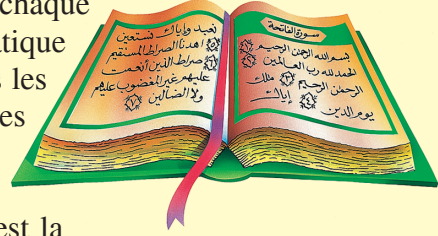 chaque
atique
s les
es
est la
سورة الفاتحة
بسم الله الرحمن الرحيم
الحمد لله رب العالمين
الرحمن الرحيم ملك
يوم الدين إياك
نعبد وإياك نستعين
اهدنا الصراط المستقيم
صراط الذين أنعمت
عليهم غير المغضوب عليهم
ولا الضالين